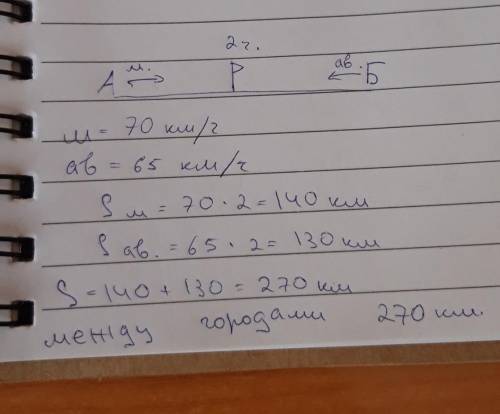 2 ч.
А м. Р ав. Б
м = 70 км/г
ав = 65 км/г
S м = 70 · 2 = 140 км
S ав. = 65 · 2 = 130 км
S = 140 + 130 = 270 км
между городами 270 км.